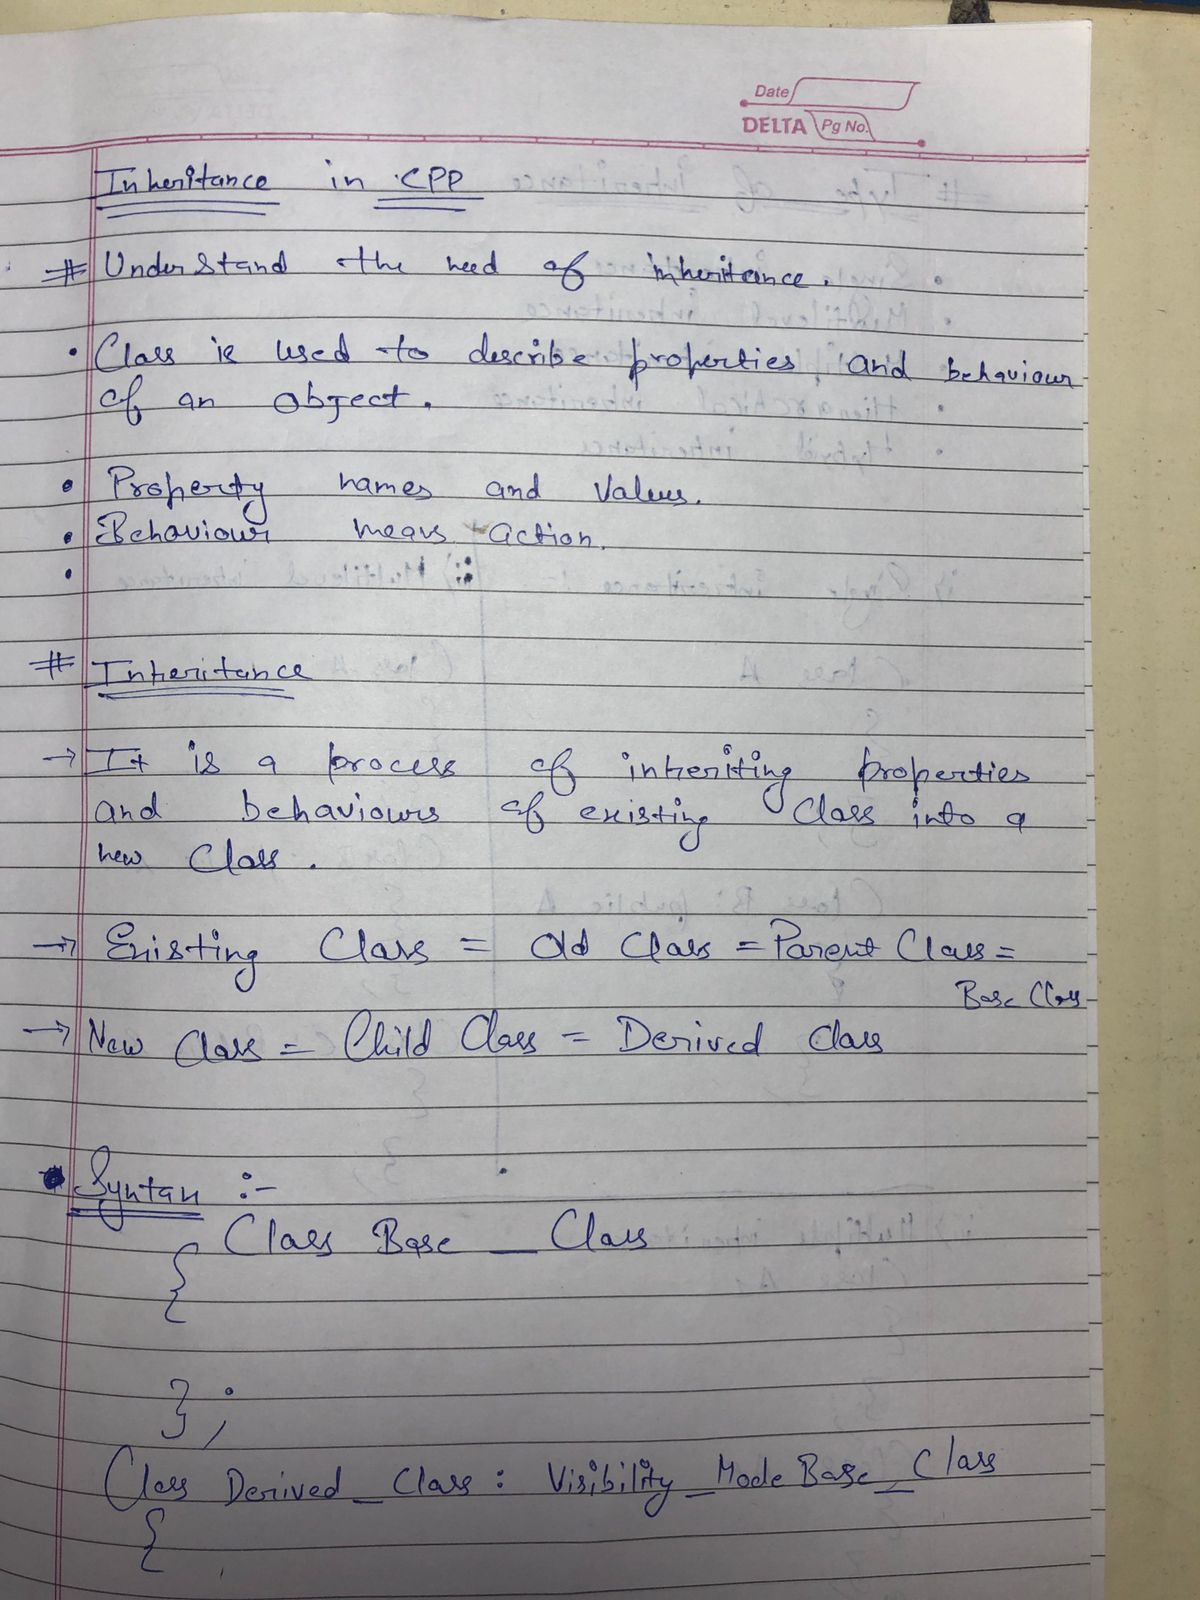 Date
DELTA Pg No.
Inheritance in CPP
# Understand the need of inheritance.
• Class is used to describe properties and behaviour
of an object.
• Property names and values.
• Behaviour means action.
•
# Inheritance
→ It is a process of inheriting properties
and behaviours of existing Class into a
new Class.
→ Existing Class = Old Class = Parent Class =
Base Class
→ New Class = Child Class = Derived Class
• Syntax :-
Class Base _ Class
{
} ;
Class Derived _ Class : Visibility _ Mode Base _ Class
{